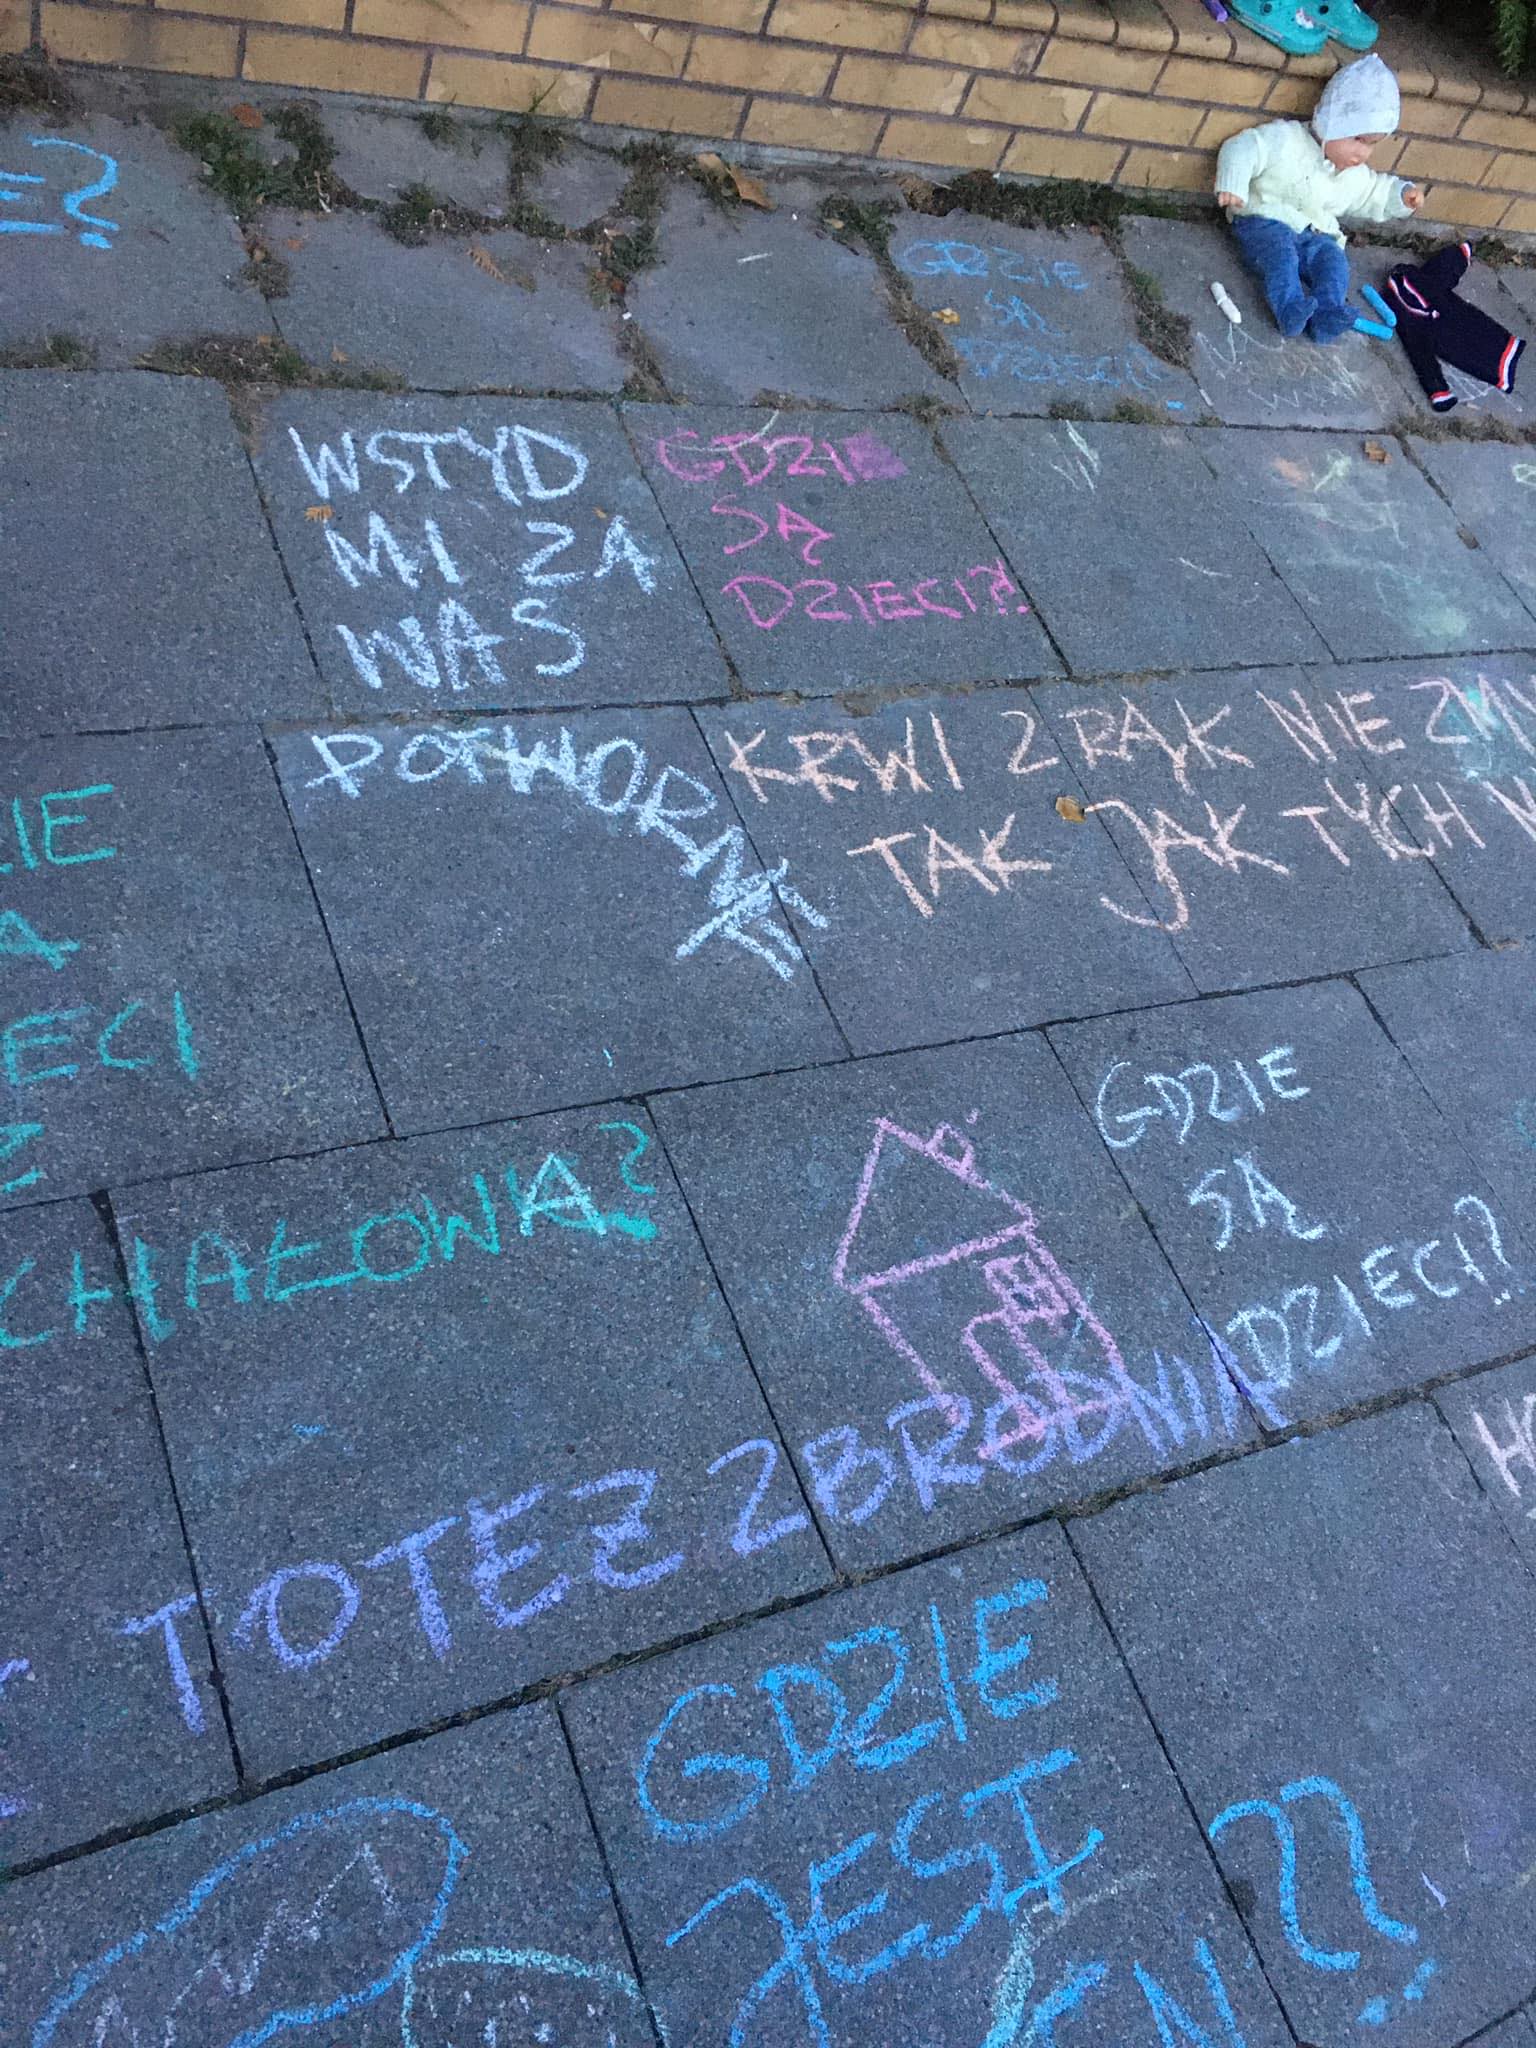 E?
GDZIE
SĄ
DZIECI?
WSTYD
MI ZA
WAS
GDZIE
SĄ
DZIECI?!
POTWORNE
KRWI Z RĄK NIE ZMY
TAK JAK TYCH
IE
A
ECI
Z
CHAŁOWA?
GDZIE
SĄ
DZIECI?
TO TEŻ ZBRODNIA
GDZIE
JEST
??